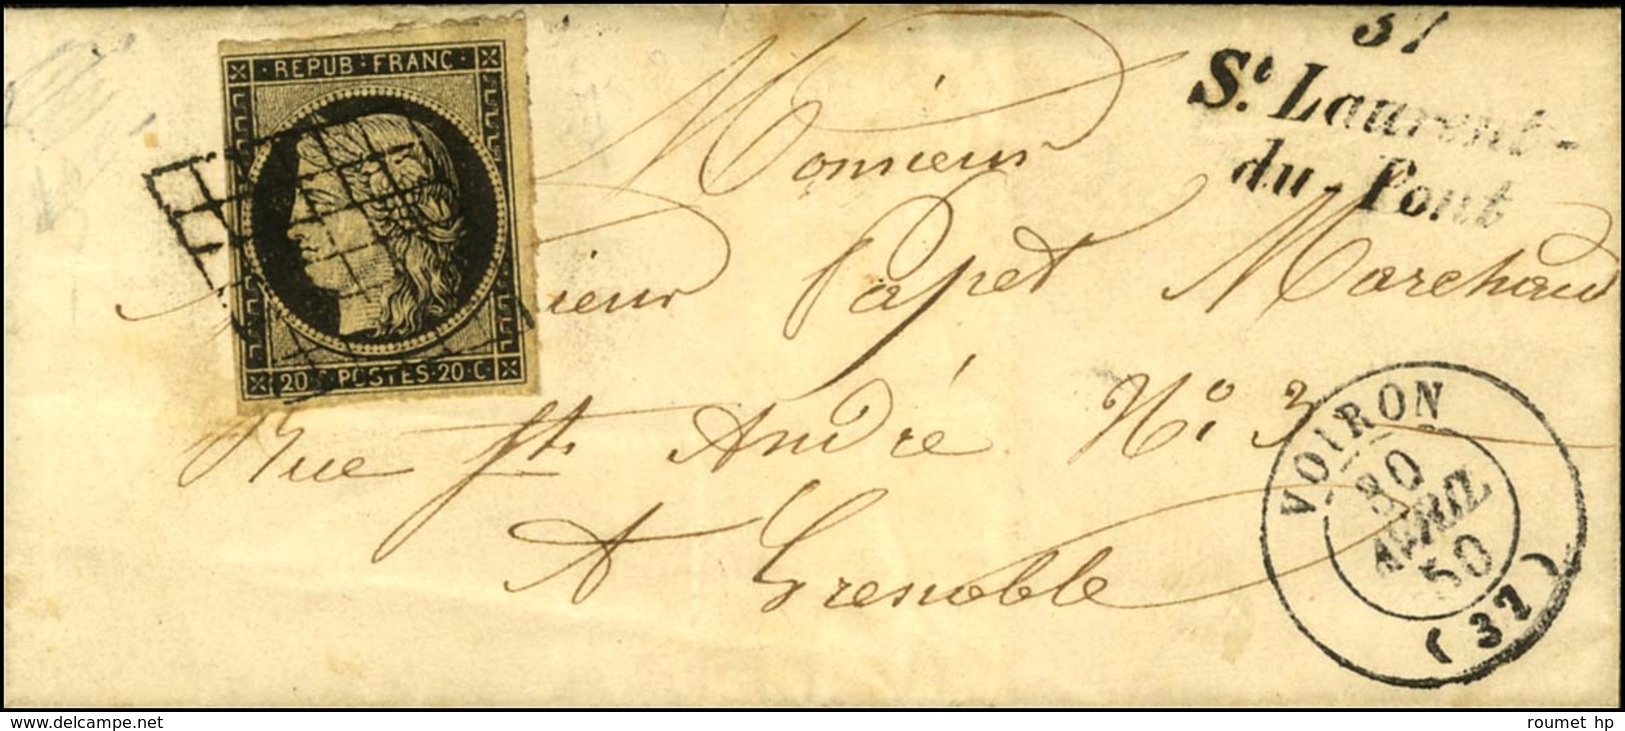 REPUB · FRANC ·
20 C · POSTES · 20 · C ·
37
St. Laurent-
du-Pont
Monsieur
Monsieur Papet Marchand
Rue St. André No. 3
A Grenoble
VOIRON
30
AVRIL
50
(37)
www.delcampe.net
roumet hp